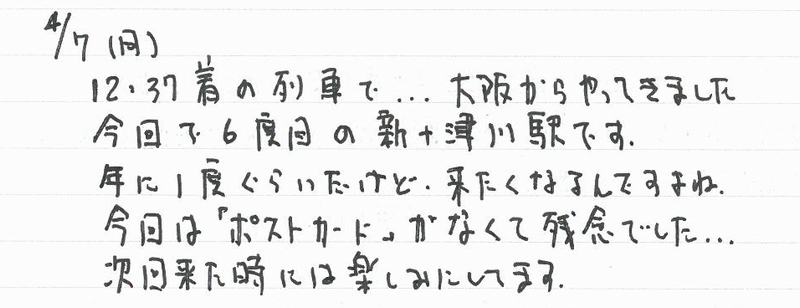 4/7(日)
12:37着の列車で...大阪からやってきました
今回で6度目の新十津川駅です.
年に1度ぐらいだけど.来たくなるんですよね.
今回は「ポストカード」がなくて残念でした...
次回来た時には楽しみにしてます.